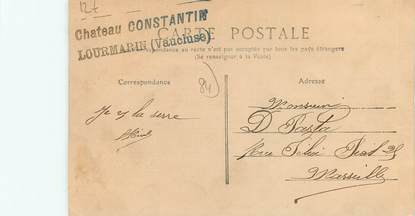 127
Chateau CONSTANTIN
LOURMARIN (Vaucluse)
CARTE POSTALE
Correspondance au recto n'est pas acceptée par tous les pays étrangers
(Se renseigner à la Poste)
Correspondance
84
Adresse
Je y la serre
Monsieur
D Pasta
Rue Félix Piat 25
Marseille